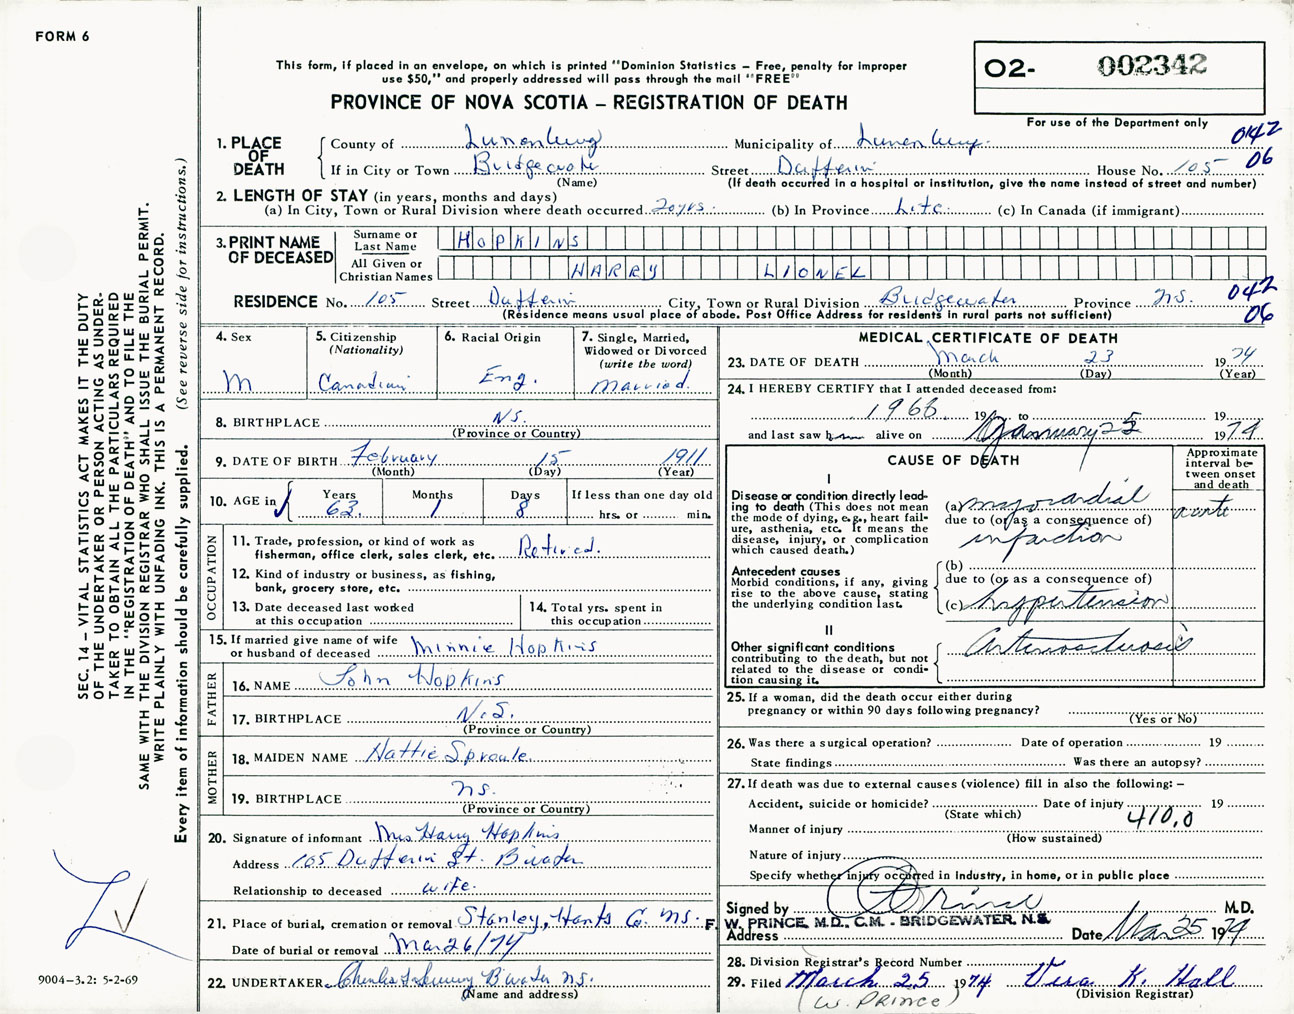 FORM 6
This form, if placed in an envelope, on which is printed "Dominion Statistics – Free, penalty for improper
use $50," and properly addressed will pass through the mail "FREE"
PROVINCE OF NOVA SCOTIA – REGISTRATION OF DEATH
O2- 002342
For use of the Department only
1. PLACE OF DEATH
County of Lunenburg Municipality of Lunenburg 042
If in City or Town Bridgewater Street Dufferin House No. 105 06
(Name) (If death occurred in a hospital or institution, give the name instead of street and number)
2. LENGTH OF STAY (in years, months and days)
(a) In City, Town or Rural Division where death occurred 20 yrs. (b) In Province Life (c) In Canada (if immigrant)
3. PRINT NAME OF DECEASED
Surname or Last Name HOPKINS
All Given or Christian Names HARRY LIONEL
RESIDENCE No. 105 Street Dufferin City, Town or Rural Division Bridgewater Province N.S. 042
(Residence means usual place of abode. Post Office Address for residents in rural parts not sufficient) 06
4. Sex
M
5. Citizenship
(Nationality)
Canadian
6. Racial Origin
Eng.
7. Single, Married,
Widowed or Divorced
(write the word)
Married.
8. BIRTHPLACE N.S.
(Province or Country)
9. DATE OF BIRTH February 15 1911
(Month) (Day) (Year)
10. AGE in
Years Months Days If less than one day old
63 1 8 hrs. or min.
OCCUPATION
11. Trade, profession, or kind of work as
fisherman, office clerk, sales clerk, etc. Retired.
12. Kind of industry or business, as fishing,
bank, grocery store, etc.
13. Date deceased last worked
at this occupation
14. Total yrs. spent in
this occupation
15. If married give name of wife
or husband of deceased Minnie Hopkins
FATHER
16. NAME John Hopkins
17. BIRTHPLACE N.S.
(Province or Country)
MOTHER
18. MAIDEN NAME Hattie Sproule
19. BIRTHPLACE N.S.
(Province or Country)
20. Signature of informant Mrs Harry Hopkins
Address 105 Dufferin St. B'water
Relationship to deceased wife.
21. Place of burial, cremation or removal Stanley, Hants Co. N.S.
Date of burial or removal Mar 26/74
22. UNDERTAKER Charles B'water N.S.
(Name and address)
MEDICAL CERTIFICATE OF DEATH
23. DATE OF DEATH March 23 1974
(Month) (Day) (Year)
24. I HEREBY CERTIFY that I attended deceased from:
1966 19 to 19
and last saw him alive on January 25 1974
CAUSE OF DEATH
Approximate
interval be-
tween onset
and death
I
Disease or condition directly lead-
ing to death (This does not mean
the mode of dying, e.g., heart fail-
ure, asthenia, etc. It means the
disease, injury, or complication
which caused death.)
(a) myocardial
due to (or as a consequence of)
infarction
acute
Antecedent causes
Morbid conditions, if any, giving
rise to the above cause, stating
the underlying condition last.
(b)
due to (or as a consequence of)
(c) hypertension
II
Other significant conditions
contributing to the death, but not
related to the disease or condi-
tion causing it.
Arteriosclerosis
25. If a woman, did the death occur either during
pregnancy or within 90 days following pregnancy?
(Yes or No)
26. Was there a surgical operation? Date of operation 19
State findings Was there an autopsy?
27. If death was due to external causes (violence) fill in also the following: –
Accident, suicide or homicide? Date of injury 19
(State which) 410.0
Manner of injury
(How sustained)
Nature of injury
Specify whether injury occurred in Industry, in home, or in public place
Signed by Prince M.D.
F. W. PRINCE, M.D., C.M. - BRIDGEWATER, N.S.
Address Date Mar 25 1974
28. Division Registrar's Record Number
29. Filed March 25 1974 Vera K. Hall
(Division Registrar)
(W. PRINCE)
SEC. 14 – VITAL STATISTICS ACT MAKES IT THE DUTY
OF THE UNDERTAKER OR PERSON ACTING AS UNDER-
TAKER TO OBTAIN ALL THE PARTICULARS REQUIRED
IN THE "REGISTRATION OF DEATH" AND TO FILE THE
SAME WITH THE DIVISION REGISTRAR WHO SHALL ISSUE THE BURIAL PERMIT.
WRITE PLAINLY WITH UNFADING INK. THIS IS A PERMANENT RECORD.
Every item of information should be carefully supplied. (See reverse side for instructions.)
9004–3.2: 5-2-69